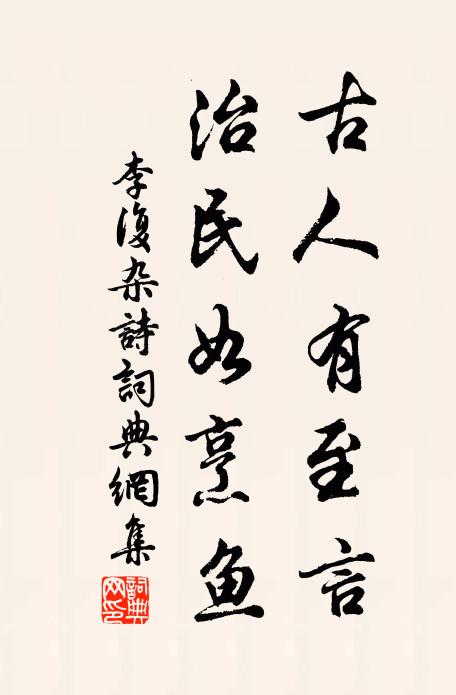 古人有至言
治民如烹鱼
李復杂詩詞典網集
詞典网印